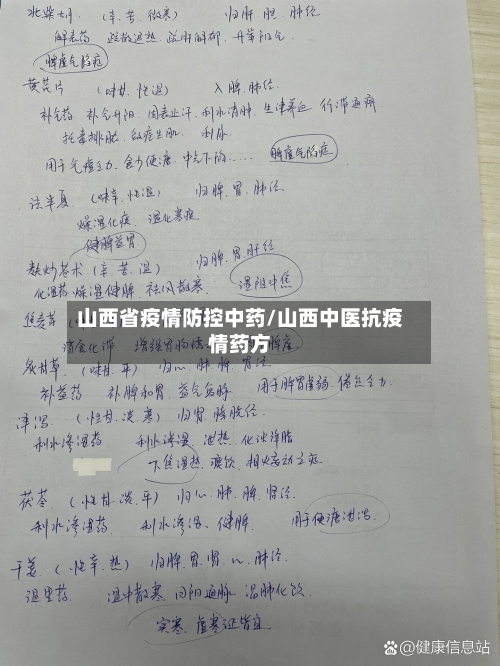 北柴胡 (辛.苦.微寒) 归肝.胆.肺经
解表药 疏散退热.疏肝解郁.升举阳气
脾虚气陷症
黄芪片 (味甘.性温) 入脾.肺经
补气药 补气升阳.固表止汗.利水消肿.生津养血.行滞通痹
托毒排脓.敛疮生肌 利尿
用于气虚乏力.食少便溏.中气下陷…… 脾虚气陷症
法半夏 (味辛.性温) 归脾.胃.肺经
燥湿化痰 温化寒痰
健脾益胃
麸炒苍术 (辛.苦.温) 归脾.胃.肝经
化湿药 燥湿健脾.祛风散寒. 湿阻中焦
山西省疫情防控中药/山西中医抗疫
情药方
炙甘草 (味甘.平) 归心.肺.脾.胃经
补益药 补脾和胃.益气复脉 用于脾胃虚弱.倦怠乏力
泽泻 (性甘.淡.寒) 归肾.膀胱经
利水渗湿药 利水渗湿.泄热.化浊降脂
下焦湿热.痰饮.相火妄动之症
茯苓 (性甘.淡.平) 归心.肺.脾.肾经
利水渗湿药 利水渗湿、健脾 用于便溏泄泻
干姜 (性辛.热) 归脾.胃.肾.心.肺经
温里药 温中散寒 回阳通脉 温肺化饮
实寒.虚寒证皆宜
@健康信息站